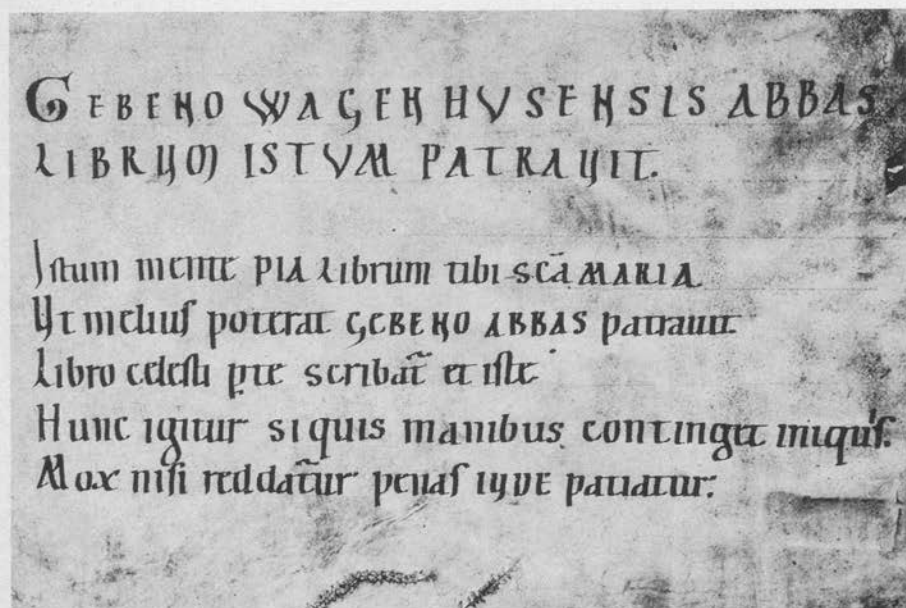 GEBEHO WAGEN HVSENSIS ABBAS
LIBRUM ISTVM PATRAUIT.
Istum mente PIA librum tibi scā MARIA
Ut meliuſ poterat GEBEHO ABBAS patrauit
Libro celeſti ꝓte scribat̄ et iſte
Hunc igitur si quis manibus continget iniquiſ.
Mox niſi reddat̄ur penaſ iuve patiatur: